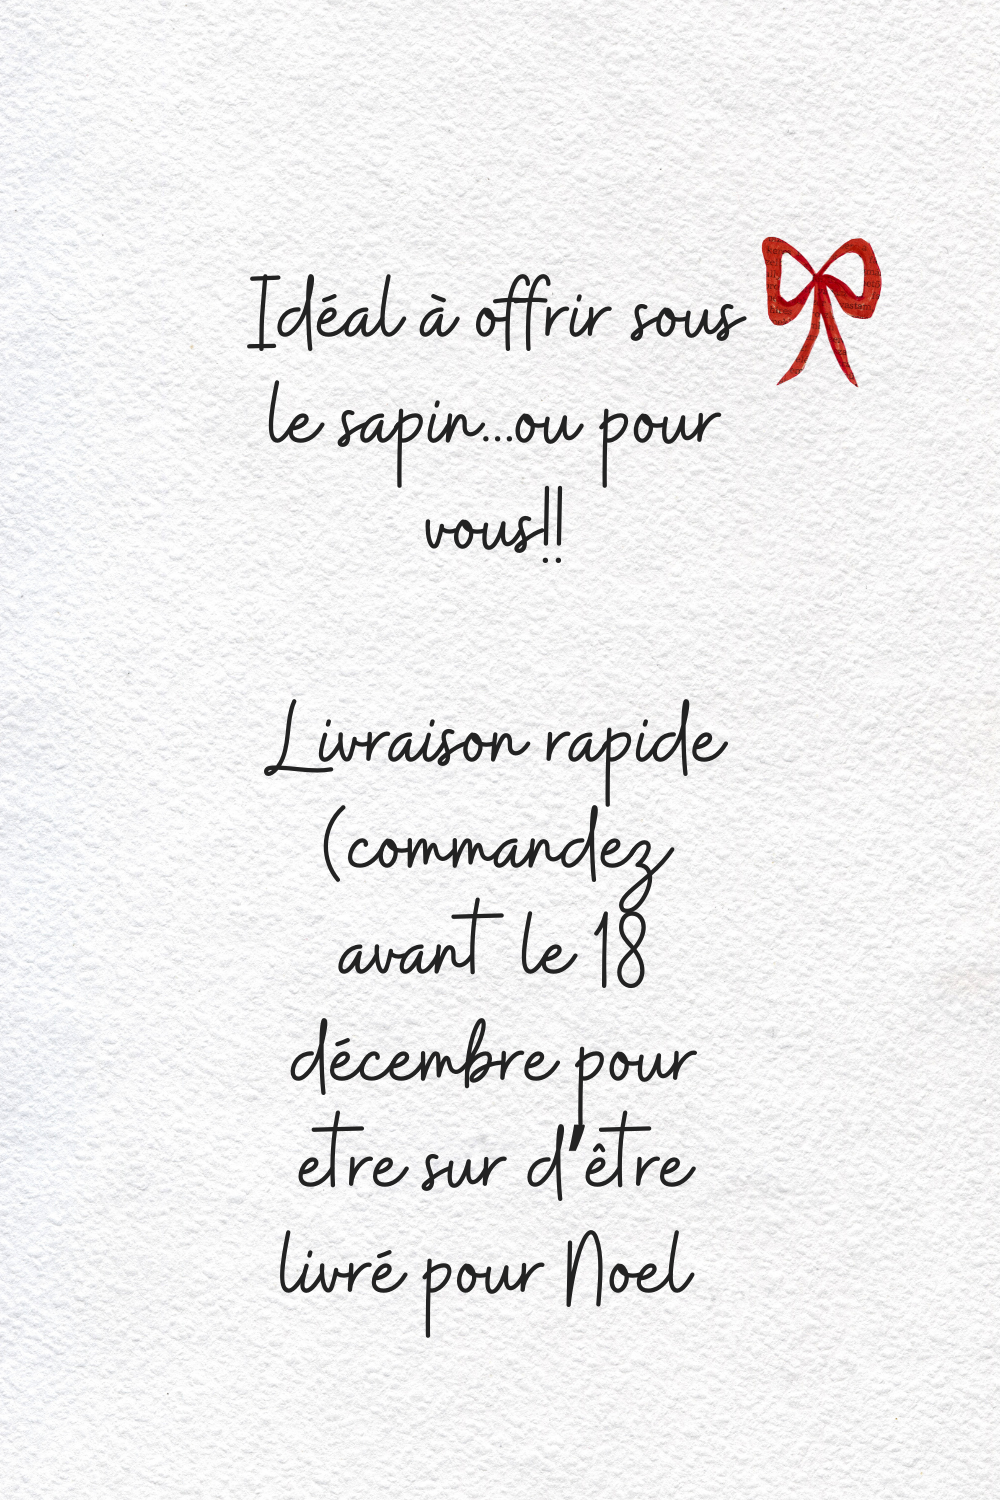 Idéal à offrir sous
le sapin...ou pour
vous!!
Livraison rapide
(commandez
avant le 18
décembre pour
etre sur d'être
livré pour Noel